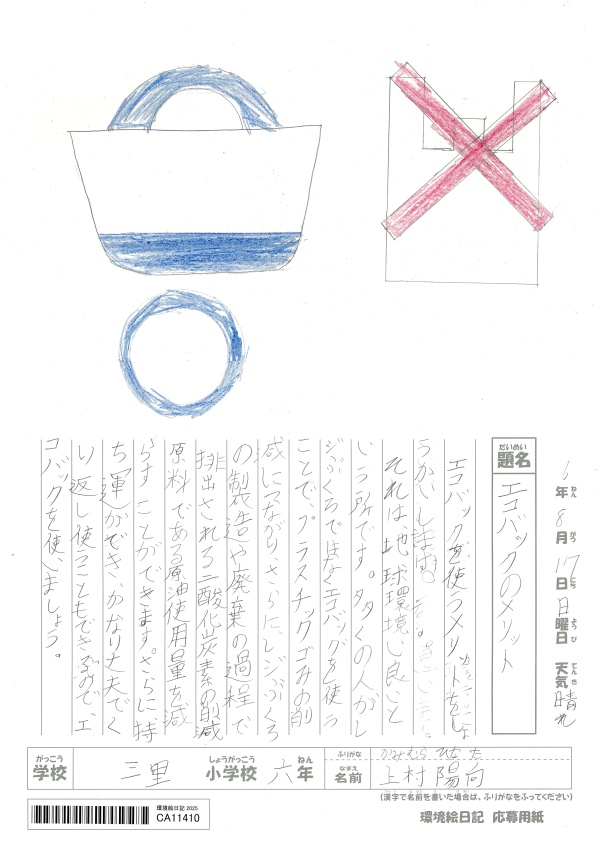 6年 8月 17日 日曜日 天気 晴れ
ねん がつ にち ようび てんき
だいめい
題名
エコバックのメリット
エコバックを使うメリットをしょ
うかいします。
それは地球環境に良いと
いう所です。多くの人がレ
ジぶくろではなくエコバッグを使う
ことで、プラスチックゴミの削
減につながり、さらに、レジぶくろ
の製造や廃棄の過程で
排出される二酸化炭素の削減
原料である原油使用量を減
らすことができます。さらに持
ち運ができ、かなり丈夫でく
り返し使うこともできるので、エ
コバックを使いましょう。
がっこう しょうがっこう ねん
学校 三里 小学校 六年
ふりがな かみむら ひなた
なまえ
名前 上村 陽向
(漢字で名前を書いた場合は、ふりがなをふってください)
環境絵日記 応募用紙
環境絵日記 2025
CA11410